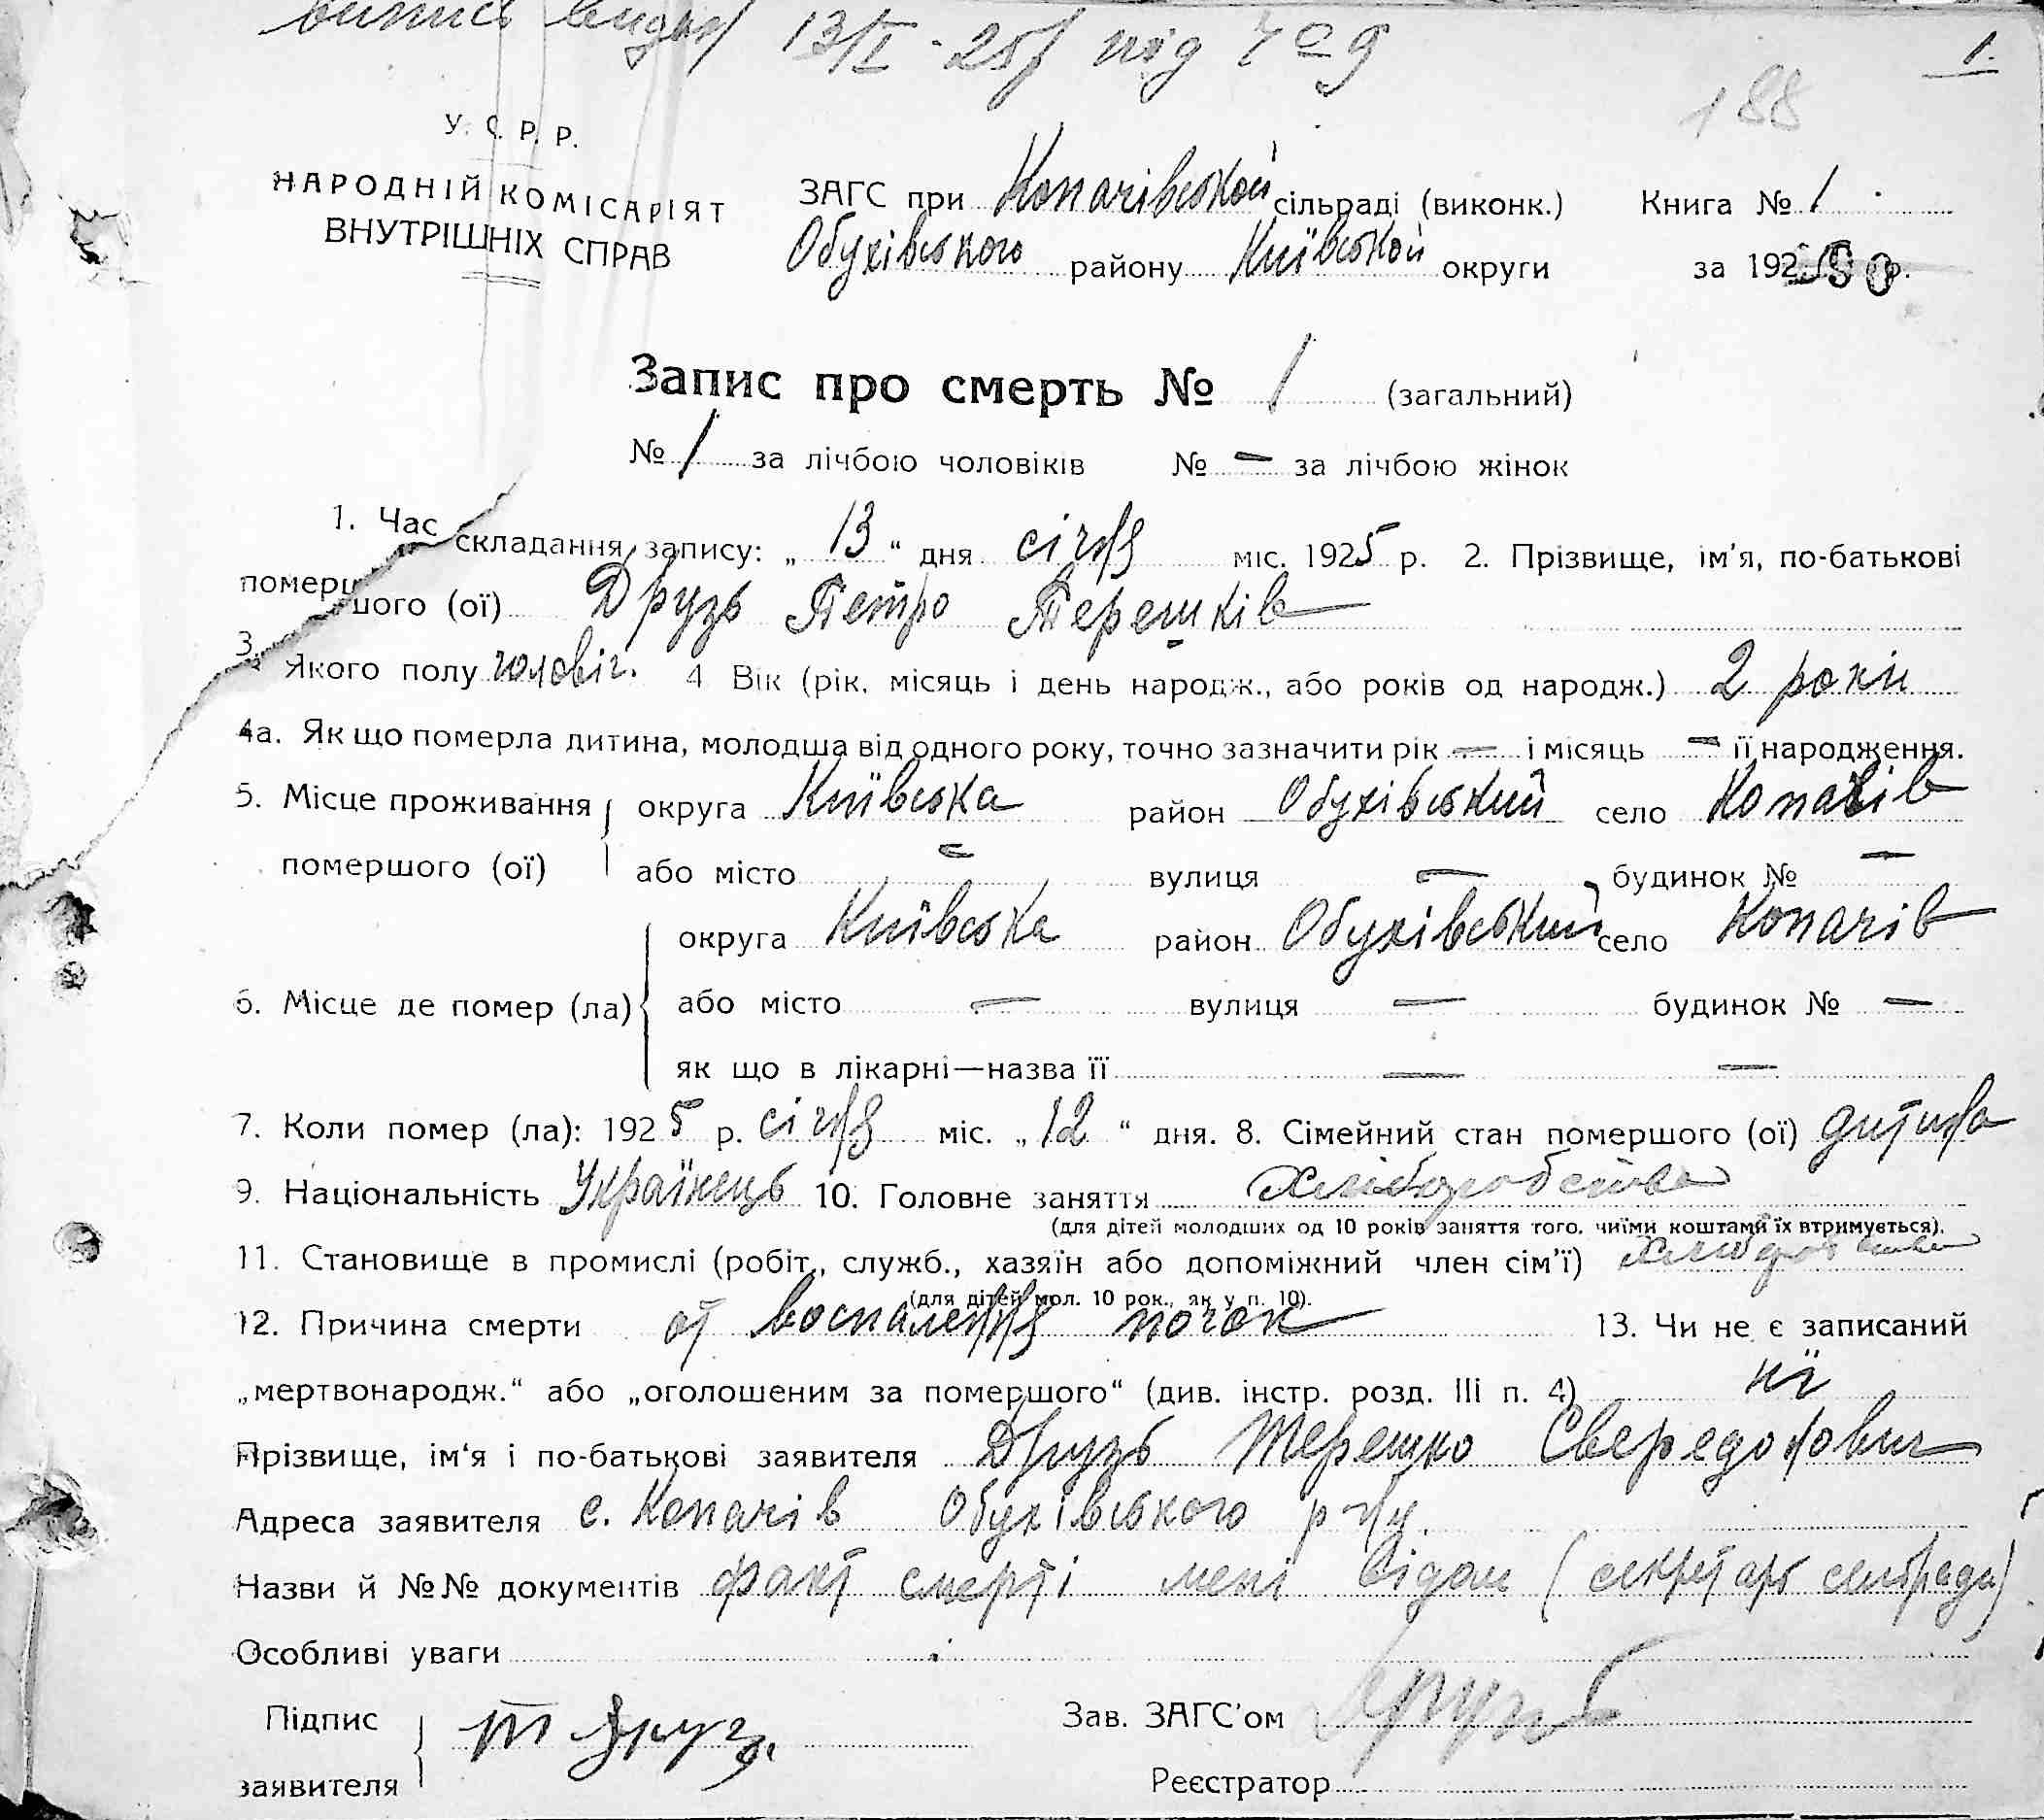 випись видан 13/I - 25 р під № 9
1.
188
У. С. Р. Р.
НАРОДНІЙ КОМІСАРІЯТ
ВНУТРІШНІХ СПРАВ
ЗАГС при Копачівськой сільраді (виконк.) Книга № 1
Обухівського району Київськой округи за 192 р.
Запис про смерть № 1 (загальний)
№ 1 за лічбою чоловіків № — за лічбою жінок
1. Час складання запису: „ 13 “ дня січня міс. 1925 р. 2. Прізвище, ім'я, по-батькові
помершого (ої) Друзь Петро Терешків
3. Якого полу чоловіч. 4 Вік (рік, місяць і день народж., або років од народж.) 2 роки
4а. Як що померла дитина, молодша від одного року, точно зазначити рік — і місяць — її народження.
5. Місце проживання округа Київська район Обухівський село Копачів
помершого (ої) або місто — вулиця — будинок № —
округа Київська район Обухівський село Копачів
6. Місце де помер (ла) або місто — вулиця — будинок № —
як що в лікарні—назва її — —
7. Коли помер (ла): 1925 р. січня міс. „ 12 “ дня. 8. Сімейний стан помершого (ої) дитина
9. Національність Українець 10. Головне заняття хліборобство
(для дітей молодших од 10 років заняття того, чиїми коштами їх втримується).
11. Становище в промислі (робіт., служб., хазяїн або допоміжний член сім'ї) хліборобство
(для дітей мол. 10 рок., як у п. 10).
12. Причина смерти от воспалення почок 13. Чи не є записаний
„мертвонародж.“ або „оголошеним за помершого“ (див. інстр. розд. III п. 4) ні
Прізвище, ім'я і по-батькові заявителя Друзь Терешко Свередонович
Адреса заявителя с. Копачів Обухівського р-ну.
Назви й №№ документів факт смерті мені відом (секретарь сельради)
Особливі уваги
Підпис
заявителя Т Друз
Зав. ЗАГС'ом Друзь
Реєстратор